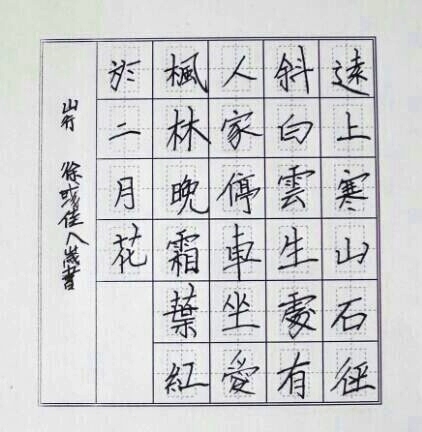 遠上寒山石徑
斜白雲生處有
人家停車坐愛
楓林晚霜葉紅
於二月花
山行 徐彧佳八歲書